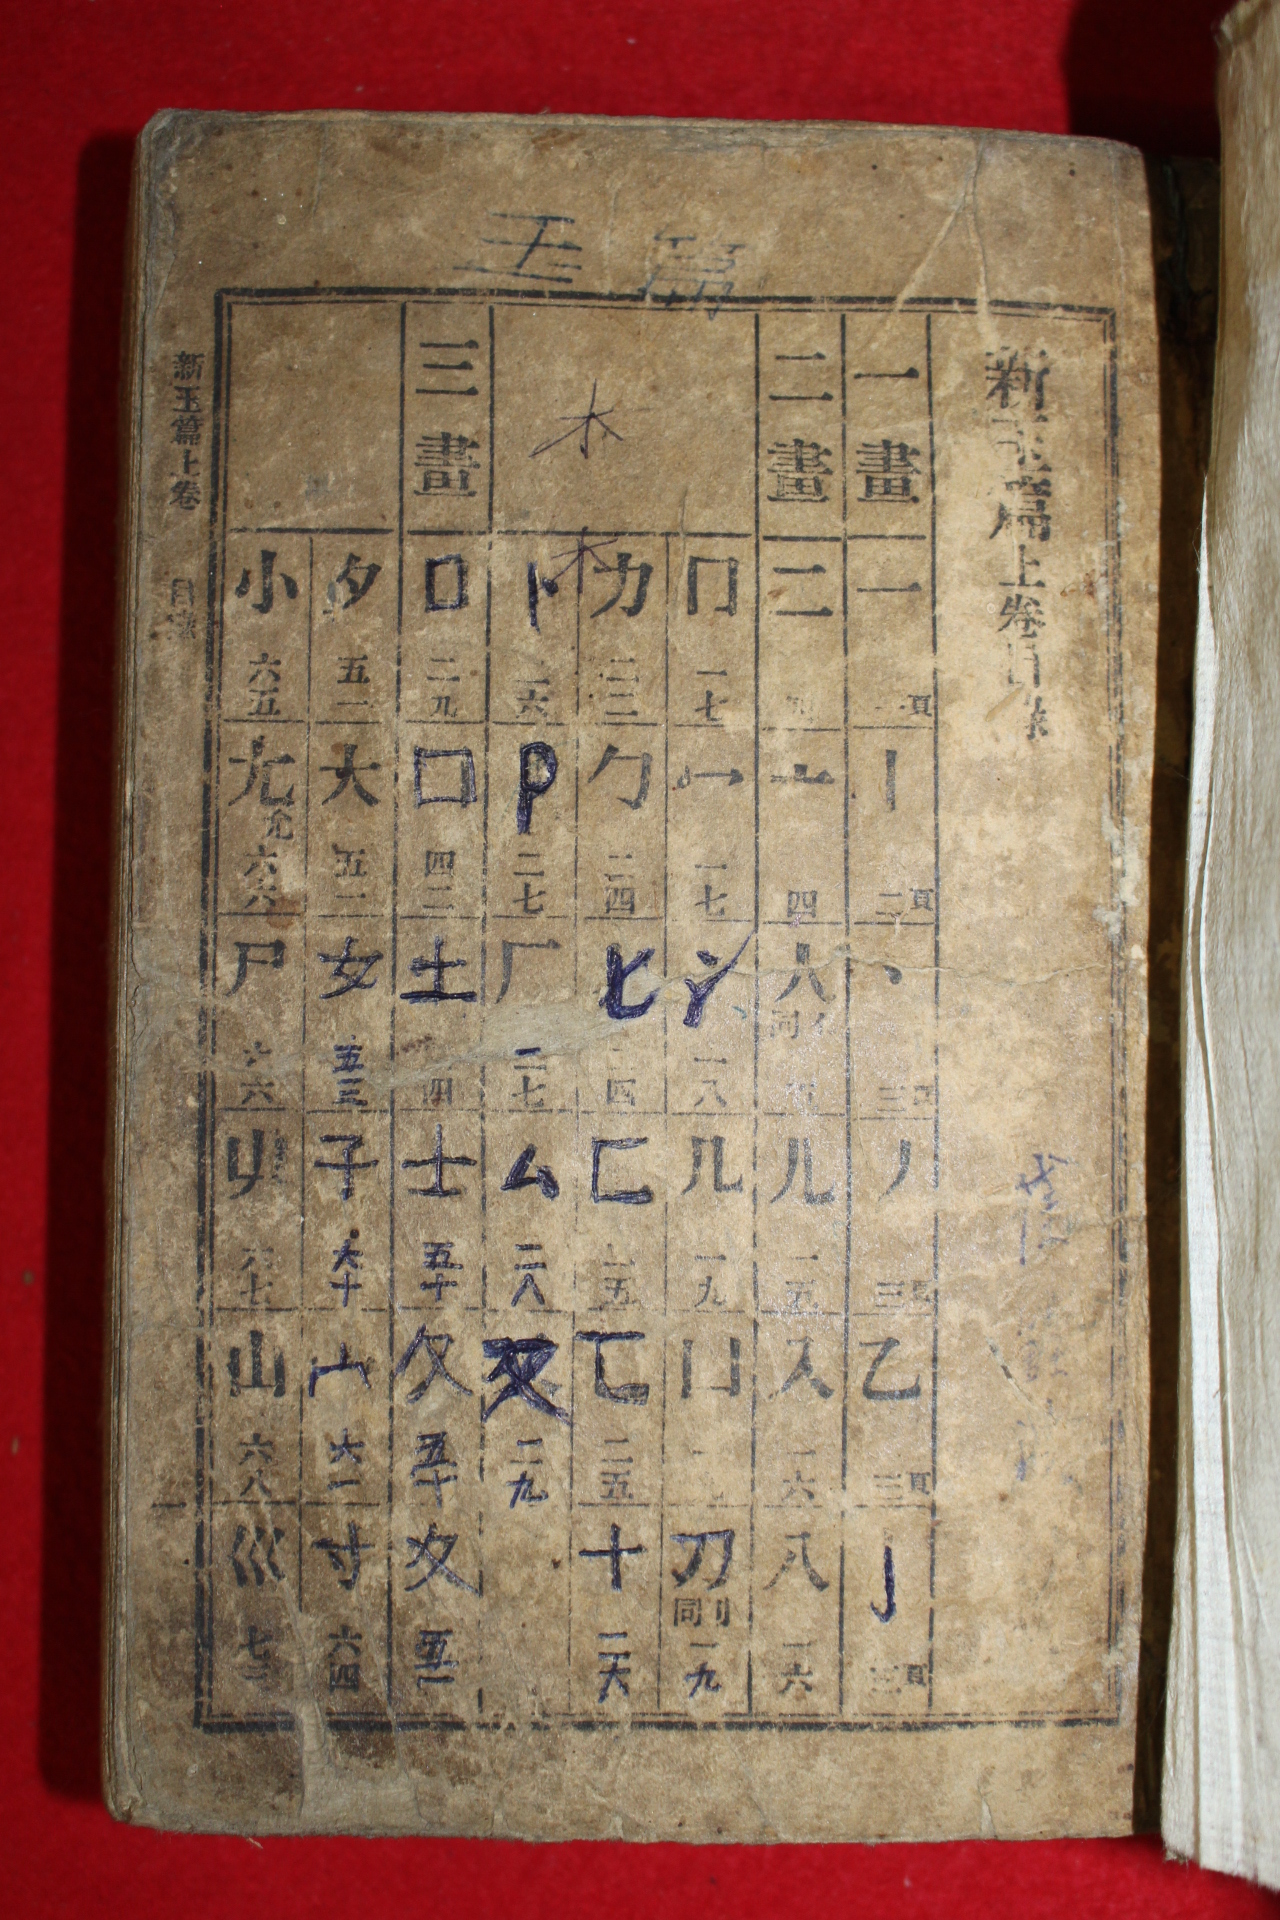 玉篇
新玉篇上卷目錄
一畫
一 一頁
丨 二頁
丶 三頁
丿 三頁
乙 三頁
亅 三頁
二畫
二 四
亠 四
人 同亻
儿 一五
入 一六
八 一六
冂 一七
冖 一七
冫 一八
几 一九
凵
刀 同刂 一九
木
木
力 二二
勹 二四
匕 二四
匚 二五
匸 二五
十 二六
卜 二六
卩 二七
厂 二七
厶 二八
又 二九
三畫
口 二九
囗 四二
土 四四
士 五十
夂 五十
夊 五一
夕 五一
大 五一
女 五三
子 六十
宀 六一
寸 六四
小 六五
尢 允 六六
尸 六六
屮 六七
山 六八
巛 七二
新玉篇上卷 目錄 一